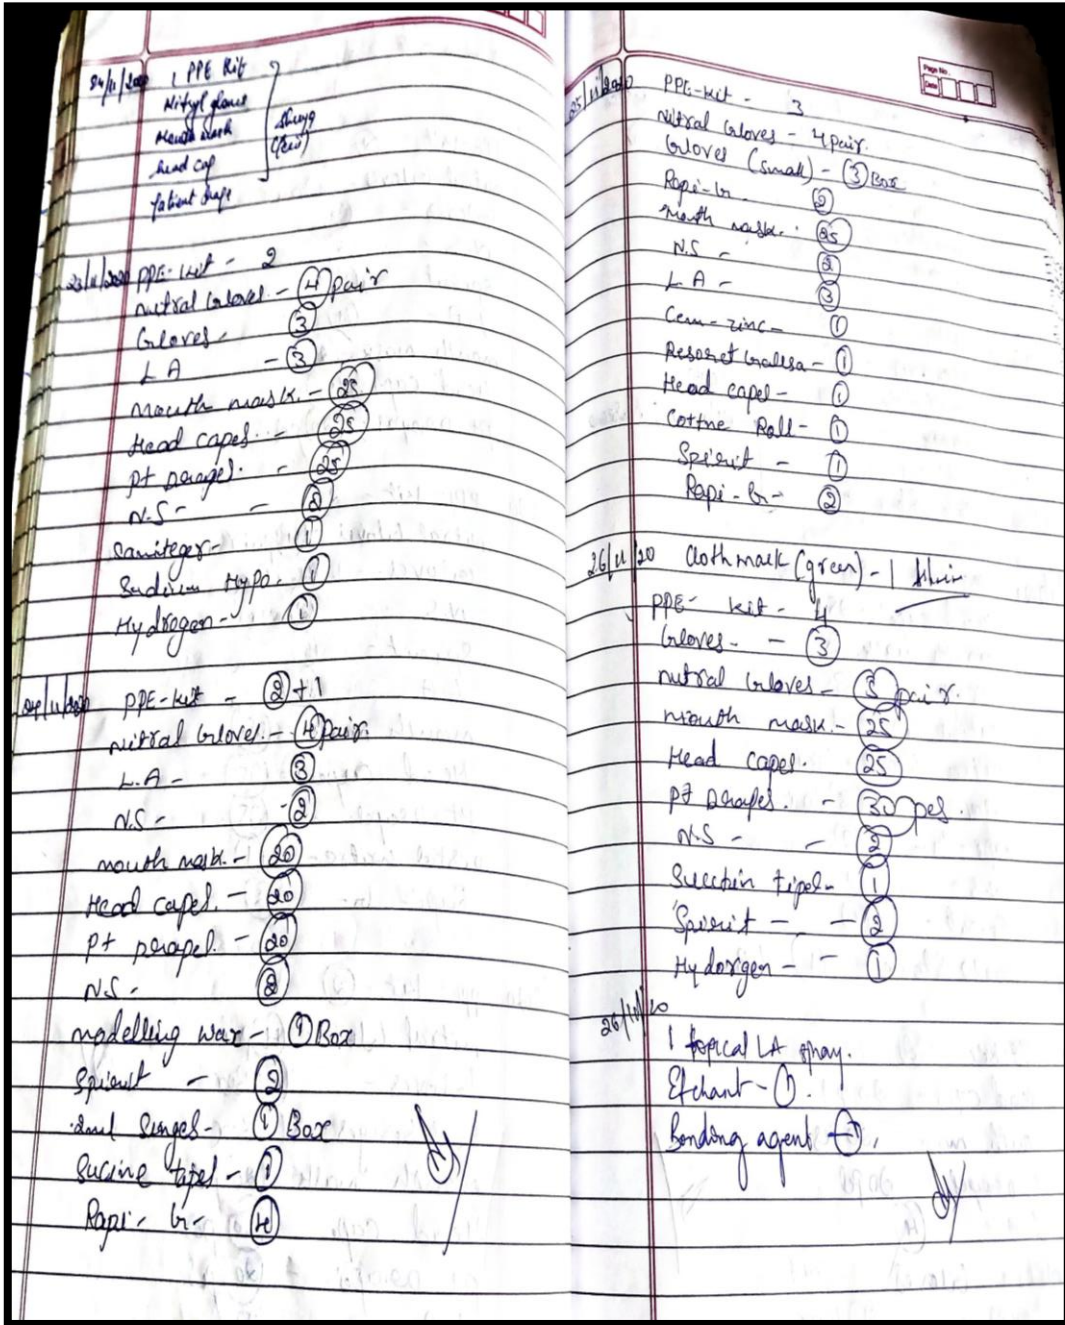 24/11/2020 1 PPE Kit
Nitryl gloves
Mouth mask
head cap
patient drape
23/11/2020 PPE-kit - 2
Nitral Gloves - 4 pair
Gloves - 3
LA - 3
Mouth mask. - 25
Head capes. - 25
Pt Drapes. - 25
N.S - - 2
Saniteger - 1
Sudium Hypo. - 1
Hydrogen - 1
24/11/2020 PPE-kit - 2 + 1
Nitral Gloves. - 4 pair.
L.A - 3
N.S - - 2
mouth mask. - 20
Head capes. - 20
Pt Drapes. - 20
N.S. - 2
modelling wax - 1 Box
Spirit - 2
2ml Singes - 1 Box
Sucine tapes - 1
Rapi - Gr - 4
Page No.
Date
25/11/2020 PPE-kit - 3
Nitral Gloves - 4 pair.
Gloves (Small) - 3 Box
Rapi-Gr. 2
Mouth mask. - 25
N.S - 2
LA - 3
Cem-zinc - 1
- 1
Head capes - 1
Cottne Roll - 1
Spirit - 1
Rapi - Gr - 2
26/11/20 Cloth mask (green) - 1
PPE - kit - 4
Gloves - - 3
nitral Gloves - 3 pair.
Mouth mask. - 25
Head capes. 25
Pt Drapes. - 30 pes.
N.S - - 2
Succtin tipes - 1
Spirit - - 2
Hydorgen - - 1
26/11/20
1 topical LA spray.
Etchant - 1.
Bonding agent - 1.